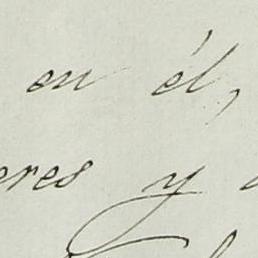 en él,
eres y